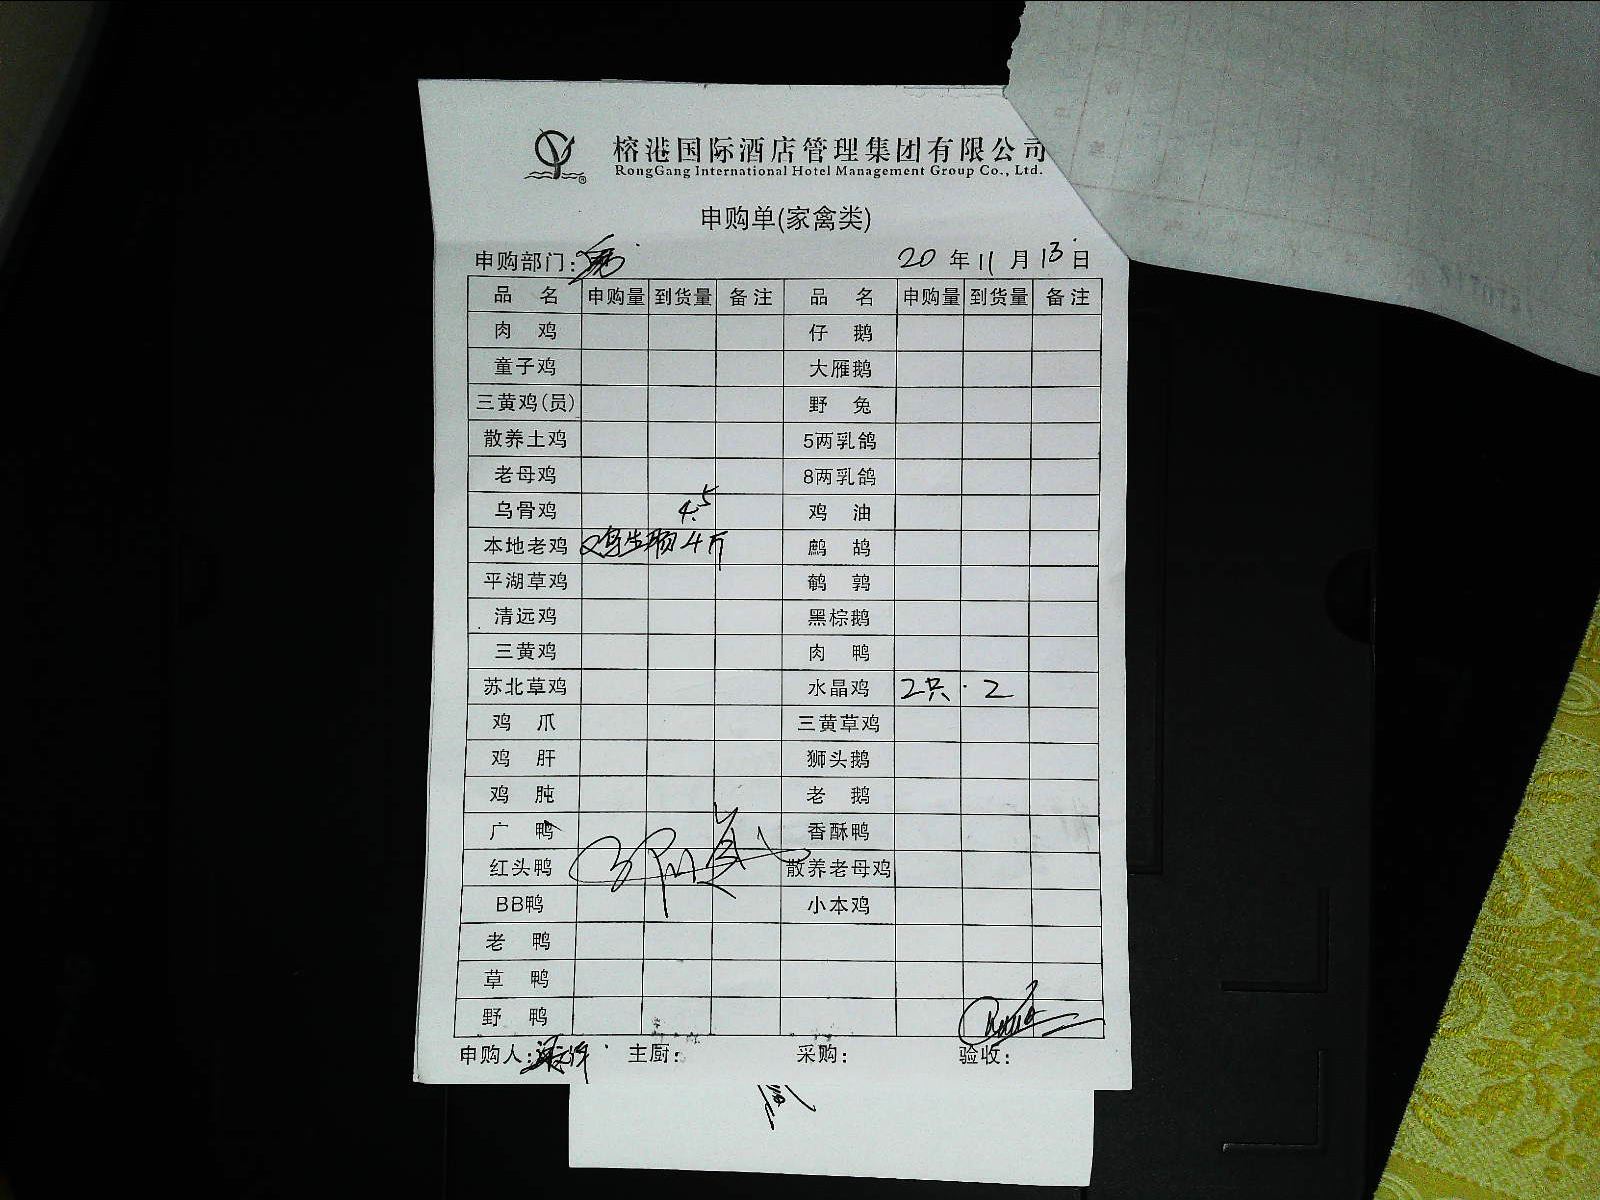 榕港国际酒店管理集团有限公司
RongGang International Hotel Management Group Co., Ltd.
申购单(家禽类)
申购部门: 20 年 11 月 13 日
品 名 申购量 到货量 备注 品 名 申购量 到货量 备注
肉 鸡 仔 鹅
童子鸡 大雁鹅
三黄鸡(员) 野 兔
散养土鸡 5两乳鸽
老母鸡 8两乳鸽
乌骨鸡 4.5 鸡 油
本地老鸡 4斤 鹧 鸪
平湖草鸡 鹌 鹑
清远鸡 黑棕鹅
三黄鸡 肉 鸭
苏北草鸡 水晶鸡 2只 2
鸡 爪 三黄草鸡
鸡 肝 狮头鹅
鸡 肫 老 鹅
广 鸭 香酥鸭
红头鸭 散养老母鸡
BB鸭 小本鸡
老 鸭
草 鸭
野 鸭
申购人: 主厨: 采购: 验收: